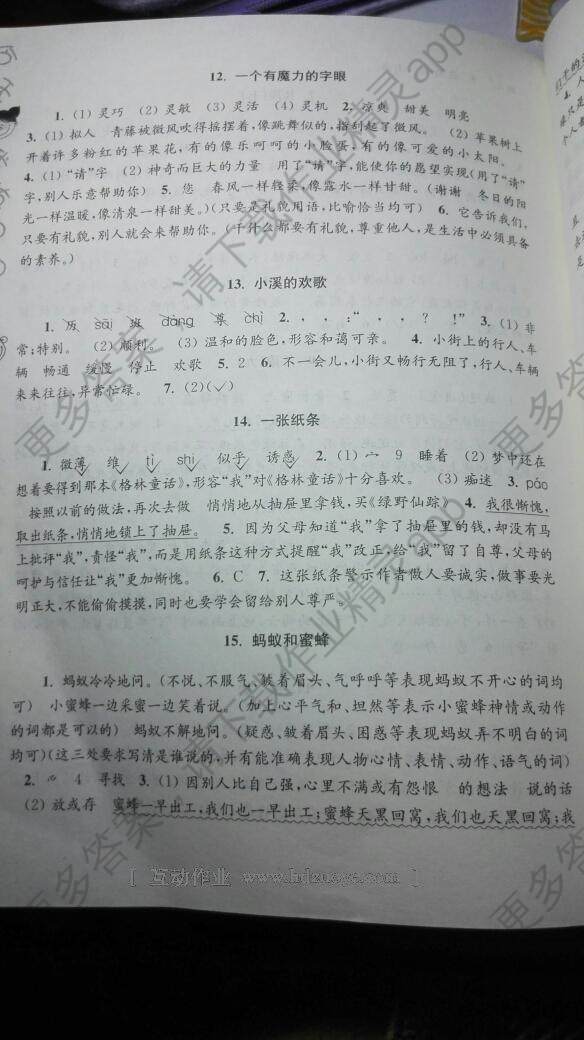 12. 一个有魔力的字眼
1. (1) 灵巧 (2) 灵敏 (3) 灵活 (4) 灵机 2. 凉爽 甜美 明亮
3. (1) 拟人 青藤被微风吹得摇摆着,像跳舞似的,指刮起了微风。 (2) 苹果树上
开着许多粉红的苹果花,有的像乐呵呵的小脸蛋,有的像可爱的小太阳。
4. (1)“请”字 (2) 神奇而巨大的力量 用了“请”字,能使你的愿望实现(用了“请”
字,别人乐意帮助你) 5. 您 春风一样轻柔,像露水一样甘甜。(谢谢 冬日的阳
光一样温暖,像清泉一样甜美。)(只要是礼貌用语,比喻恰当均可) 6. 它告诉我们,
只要有礼貌,别人就会来帮助你。(干什么都要有礼貌,尊重他人,是生活中必须具备
的素养。)
13. 小溪的欢歌
1. 厉 sāi 斑 dàng 尊 chì 2. , , :“ , , ? !” 3. (1) 非
常;特别。 (2) 顺利。 (3) 温和的脸色,形容和蔼可亲。 4. 小街上的行人、车
辆 畅通 缓慢 停止 欢歌 5. 2 6. 不一会儿,小街又畅行无阻了,行人、车辆
来来往往,异常忙碌。 7. (2)(✓)
14. 一张纸条
1. 微薄 维 tì shì 似乎 诱惑 2. (1) 宀 9 睡着 (2) 梦中还在
想着要得到那本《格林童话》,形容“我”对《格林童话》十分喜欢。 (3) 痴迷 3. páo
按照以前的做法,再次去做 悄悄地从抽屉里拿钱,买《绿野仙踪》 4. 我很惭愧,
取出纸条,悄悄地锁上了抽屉。 5. 因为父母知道“我”拿了抽屉里的钱,却没有马
上批评“我”,责怪“我”,而是用纸条这种方式提醒“我”改正,给“我”留了自尊,父母的
呵护与信任让“我”更加惭愧。 6. C 7. 这张纸条警示作者做人要诚实,做事要光
明正大,不能偷偷摸摸,同时也要学会留给别人尊严。
15. 蚂蚁和蜜蜂
1. 蚂蚁冷冷地问。(不悦、不服气、皱着眉头、气呼呼等表现蚂蚁不开心的词均
可) 小蜜蜂一边采蜜一边笑着说。(加上心平气和、坦然等表示小蜜蜂神情或动作
的词都是可以的) 蚂蚁不解地问。(疑惑、皱着眉头、困惑等表现蚂蚁弄不明白的词
均可)(这三处要求写清是谁说的,并有能准确表现人物心情、表情、动作、语气的词)
2. 4 寻找 3. (1) 因别人比自己强,心里不满或有怨恨 的想法 说的话
(2) 放或存 蜜蜂一早出工,我们也一早出工;蜜蜂天黑回窝,我们也天黑回窝;我
[ 互动作业 www.hdzuoye.com ]
更多答案 请下载作业精灵app
更多答案 请下载作业精灵app